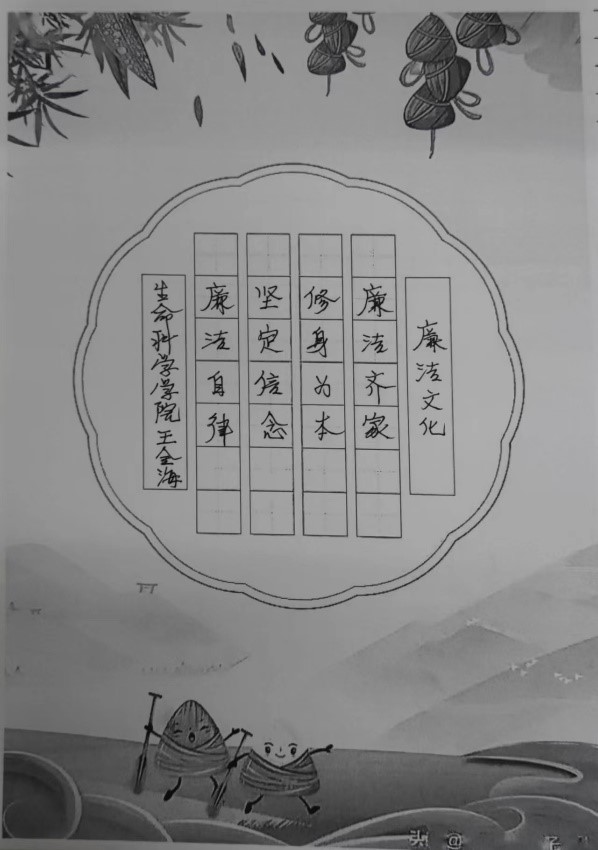 廉洁文化
廉洁齐家
修身为本
坚定信念
廉洁自律
生命科学学院王全海
头 @